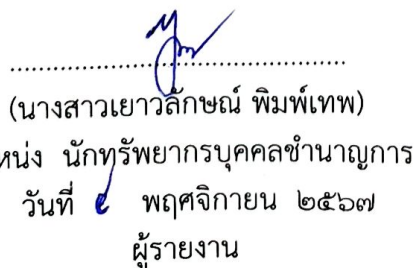 (นางสาวเยาวลักษณ์ พิมพ์เทพ)
หน่ง นักทรัพยากรบุคคลชำนาญการ
วันที่ พฤศจิกายน ๒๕๖๗
ผู้รายงาน